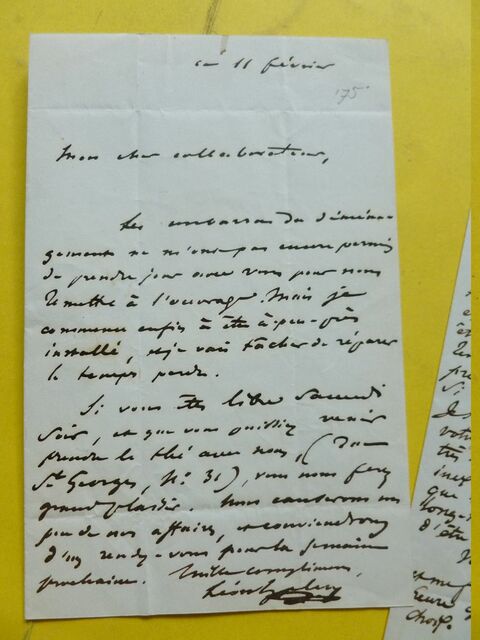 ce 11 février
175
Mon cher collaborateur,
Les embarras du déména-
gement ne m'ont pas encore permis
de prendre jour avec vous pour nous
remettre à l'ouvrage. Mais je
commence enfin à être à-peu-près
installé, et je vais tâcher de réparer
le temps perdu.
Si vous êtes libre samedi
soir, et que vous puissiez venir
prendre le thé avec nous, (rue
St Georges, No 31), vous nous ferez
grand plaisir. Nous causerons un
peu de nos affaires, et conviendrons
d'un rendez-vous pour la semaine
prochaine. Mille compliments,
Léon
votre
très
que
d'être
choix.